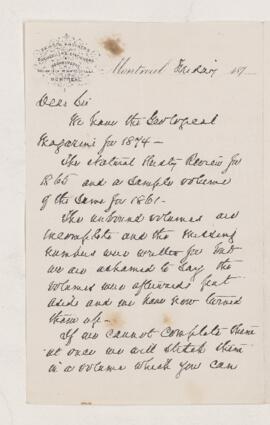 MONTREAL
Montreal Friday 187
Dear Sir
We have the Geological
Magazine for 1874 –
The Natural Hist'y Review for
1865 and a sample volume
of the same for 1861 –
The unbound volumes are
incomplete and the missing
numbers were written for but
we are ashamed to say the
volumes were afterwards put
aside and we have now turned
them up –
If we cannot complete them
at once we will stitch them
in a volume which you can